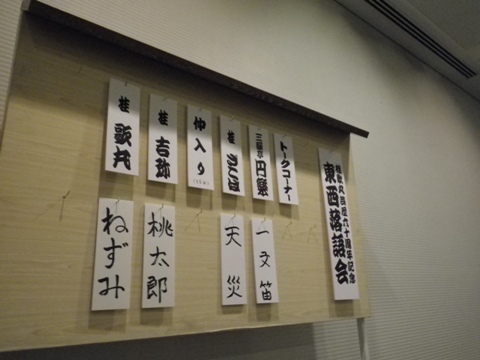 桂歌丸芸歴六十周年記念
東西落語会
トークコーナー
三遊亭
円楽
一文笛
桂
ざこば
天災
仲入り
桂
吉弥
桃太郎
桂
歌丸
ねずみ